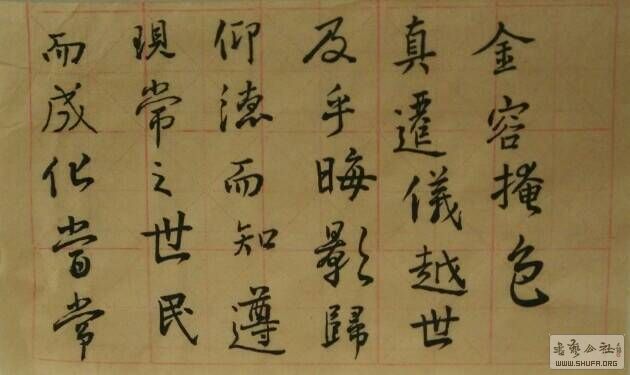 而成化當常
現常之世民
仰德而知遵
及乎晦影歸
真遷儀越世
金容掩色
書藝公社
WWW.SHUFA.ORG